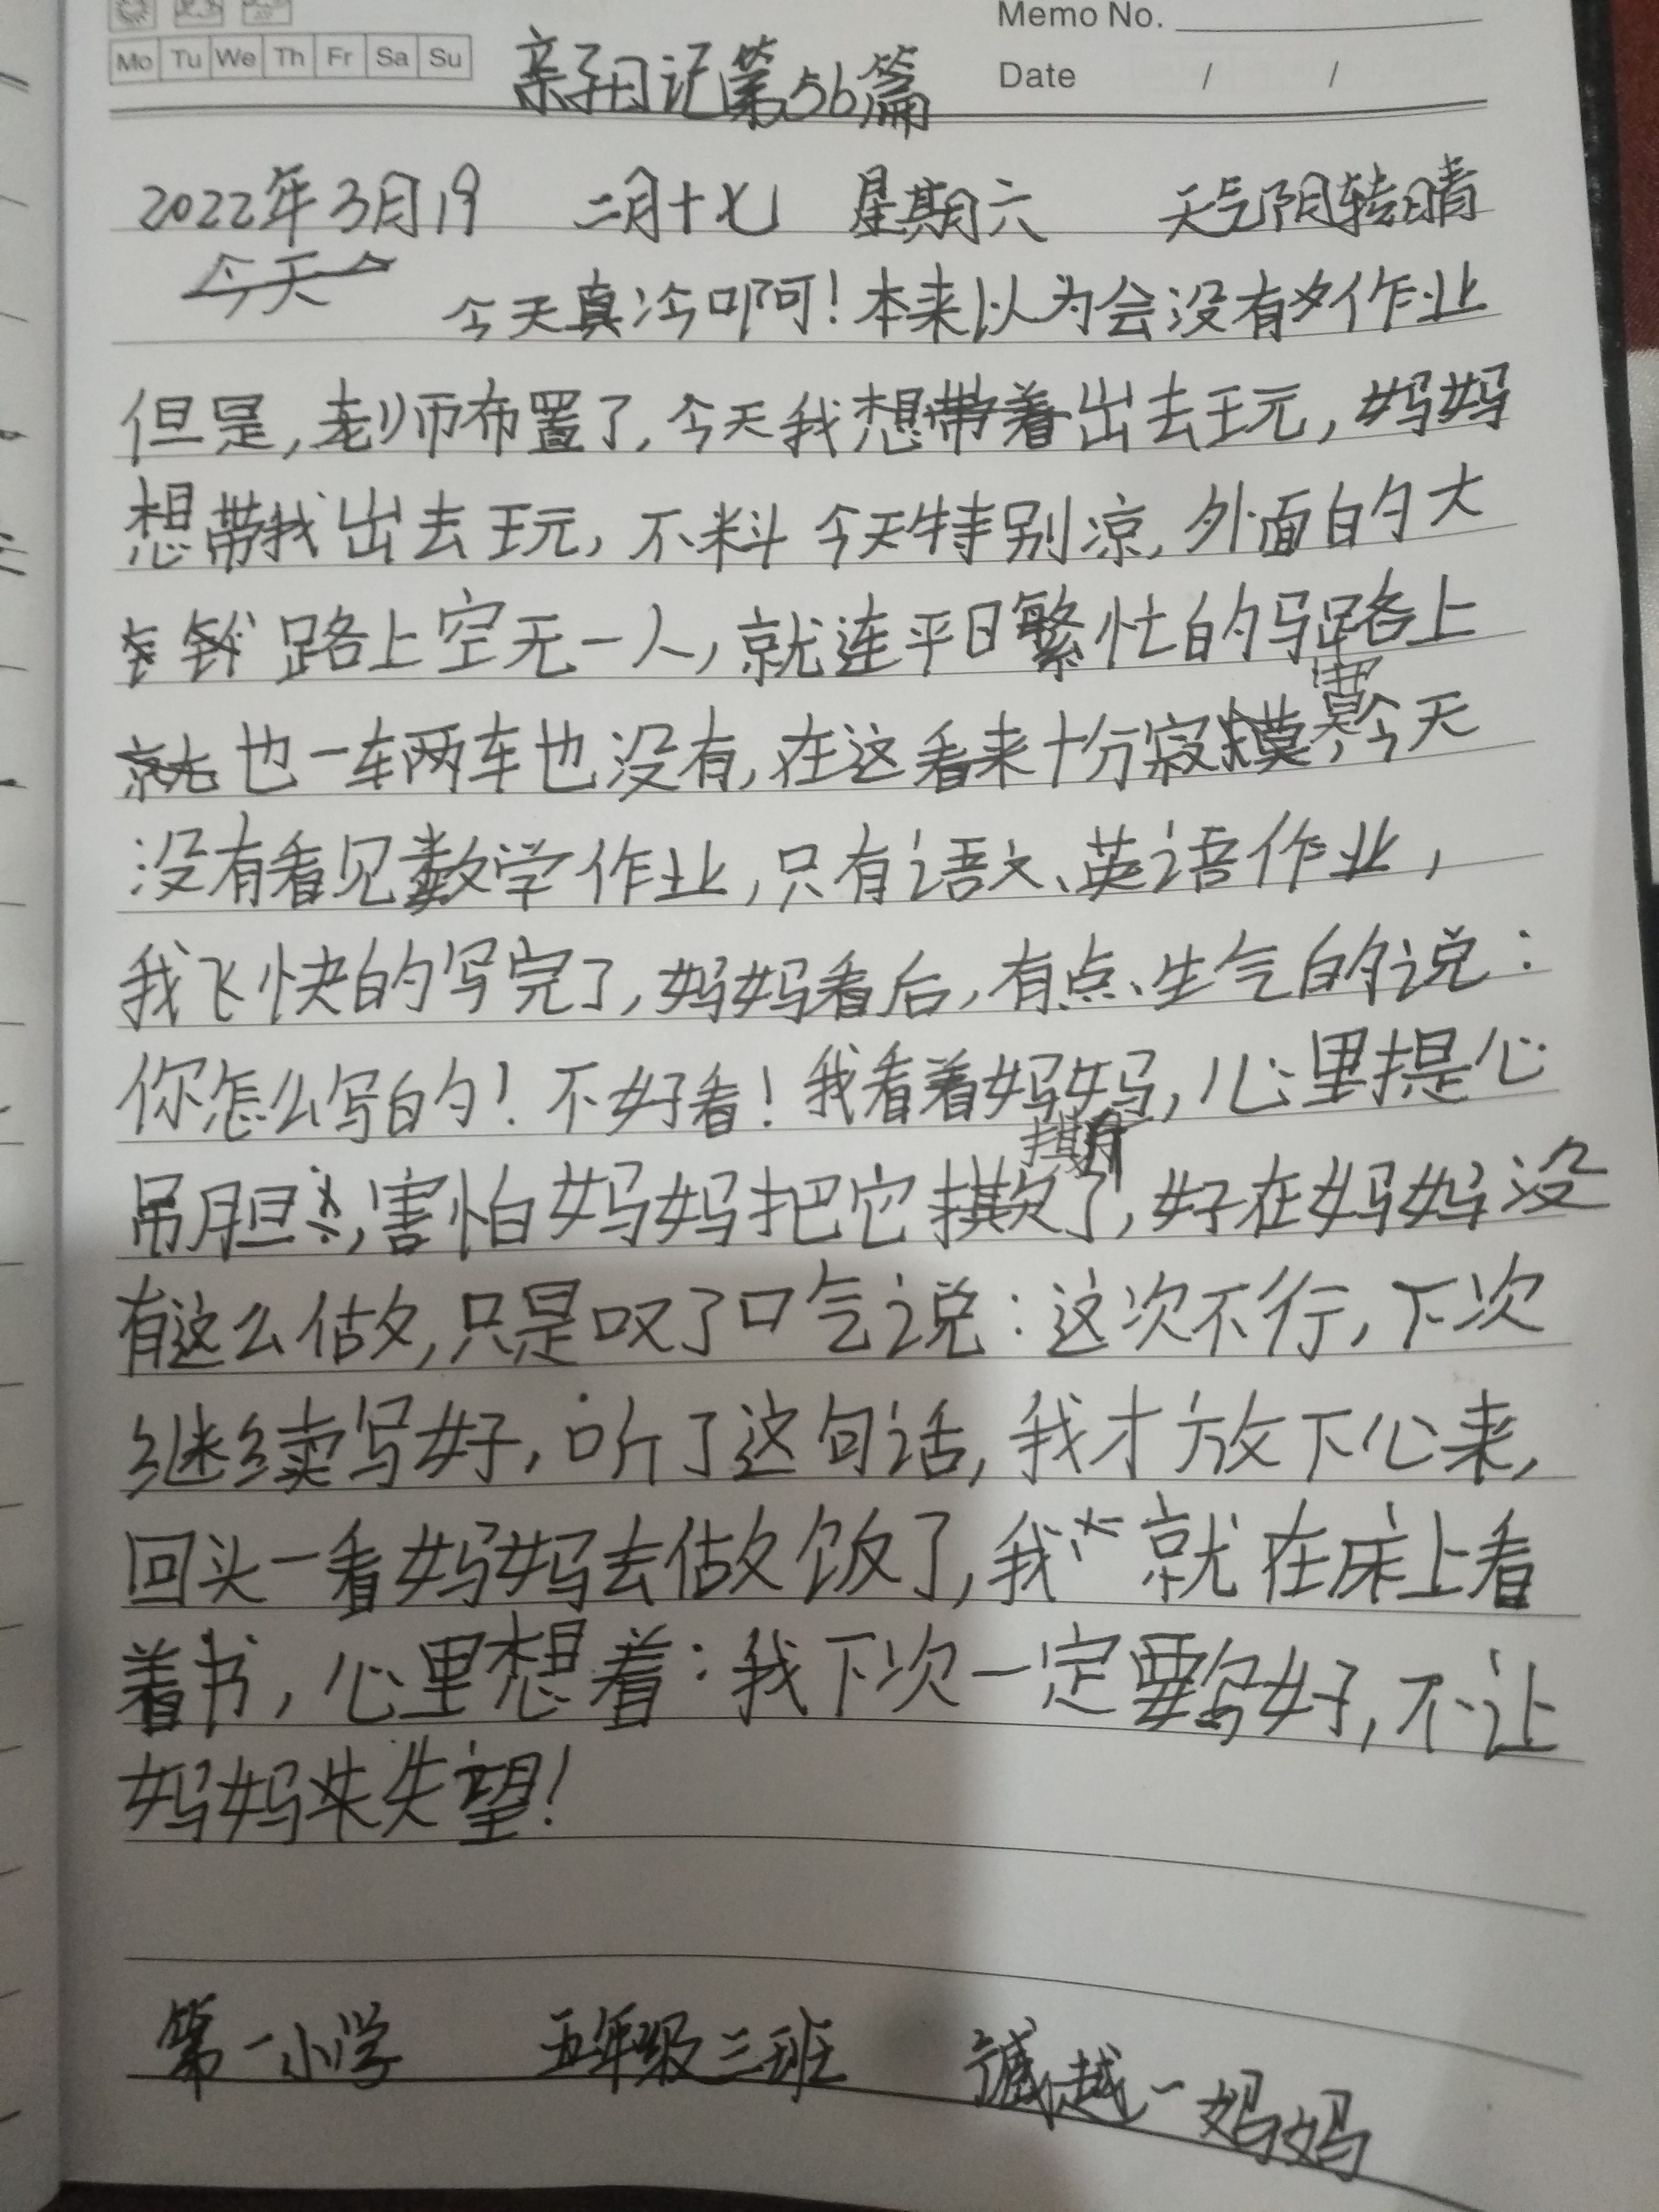 Memo No.
Mo Tu We Th Fr Sa Su
亲子日记第56篇
Date / /
2022年3月19 二月十七 星期六 天气阴转晴
今天真冷啊!本来以为会没有夕作业
但是,老师布置了,今天我想带着出去玩,妈妈
想带我出去玩,不料今天特别凉,外面的大
路上空无一人,就连平日繁忙的马路上
也一车两车也没有,在这看来十分寂寞,今天
没有看见数学作业,只有语文、英语作业,
我飞快的写完了,妈妈看后,有点生气的说:
你怎么写的!不好看!我看着妈妈,心里提心
吊胆,害怕妈妈把它撕了,好在妈妈没
有这么做,只是叹了口气说:这次不行,下次
继续写好,听了这句话,我才放下心来,
回头一看妈妈去做饭了,我就在床上看
着书,心里想着:我下次一定要写好,不让
妈妈失望!
第一小学 五年级三班 越一妈妈